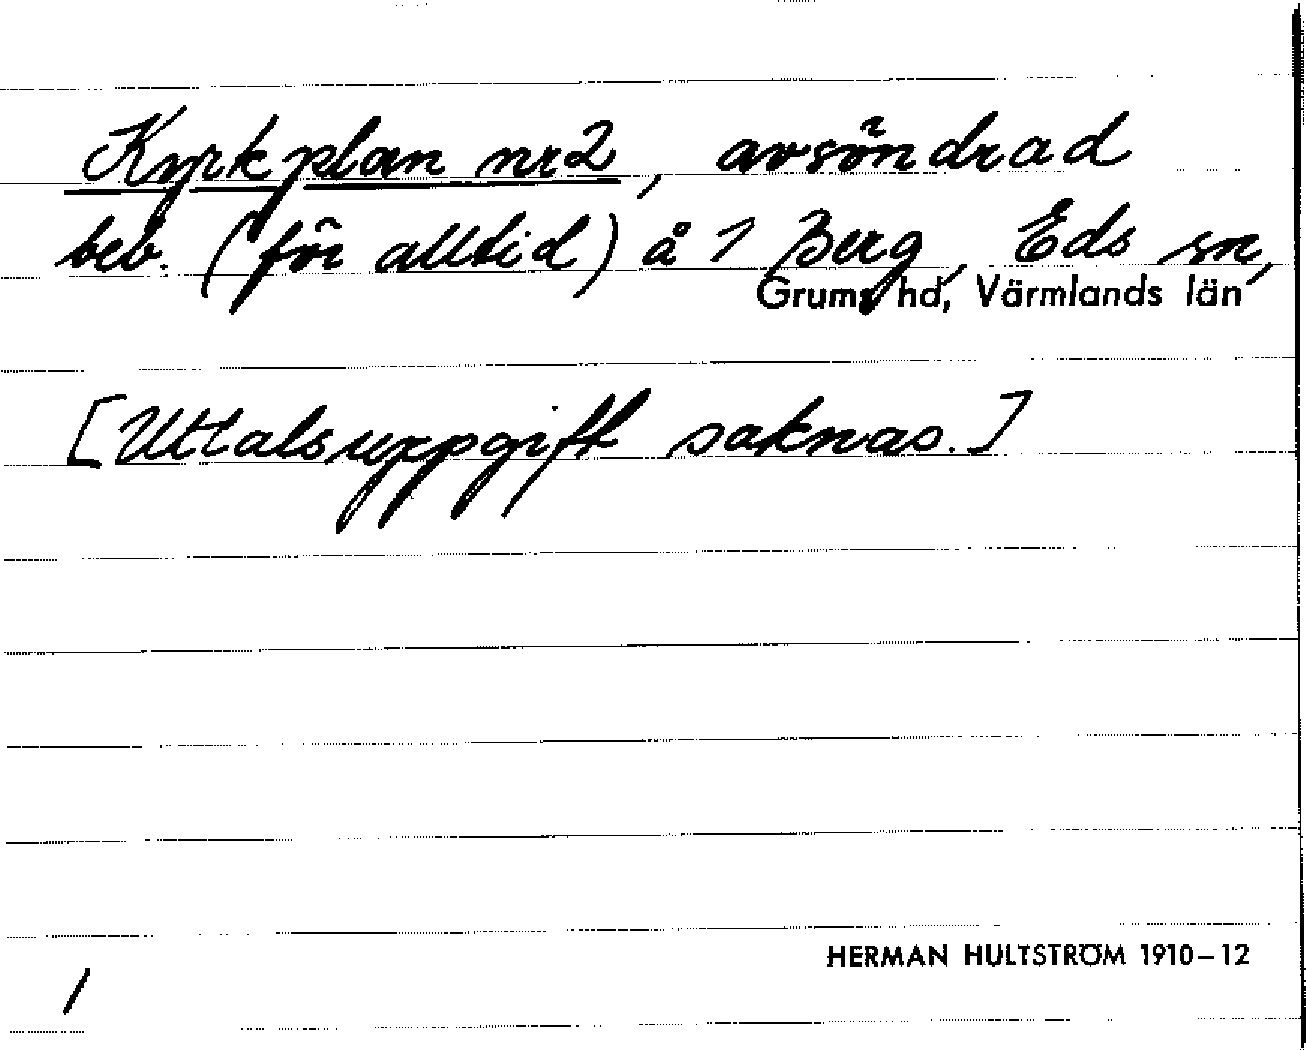 Kyrkplan nr 2, avsöndrad
beb. (för alltid) å 1 Berg, Eds sn,
Grums hd, Värmlands län
[Uttalsuppgift saknas.]
HERMAN HULTSTRÖM 1910–12
/